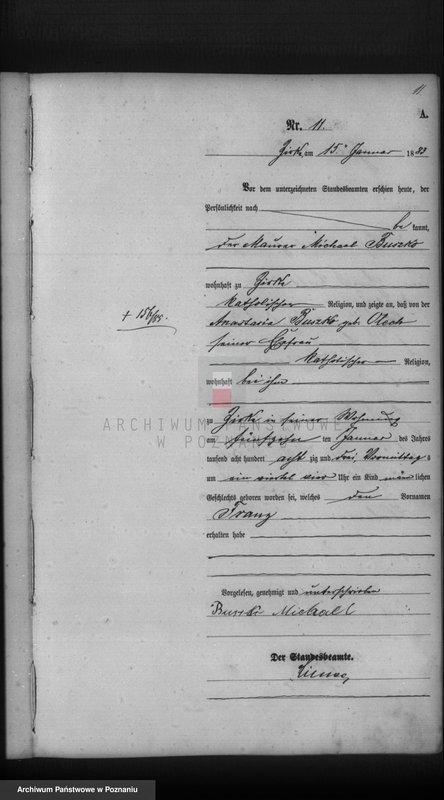 11
A.
Nr. 11.
Zirke am 15. Januar 1883
Vor dem unterzeichneten Standesbeamten erschien heute, der
Persönlichkeit nach
be kannt,
der Maurer Michael Buszko
wohnhaft zu Zirke
katholischer Religion, und zeigte an, daß von der
Anastasia Buszko geb. Olech
seiner Ehefrau
katholischer Religion,
wohnhaft bei ihm
zu Zirke in seiner Wohnung
am fünfzehn ten Januar des Jahres
tausend acht hundert acht zig und drei, Vormittag s
um ein viertel vier Uhr ein Kind männ lichen
Geschlechts geboren worden sei, welches den Vornamen
Franz
erhalten habe
Vorgelesen, genehmigt und unterschrieben
Buszko Michael
Der Standesbeamte.
ARCHIWUM PAŃSTWOWE
W POZNANIU
Archiwum Państwowe w Poznaniu